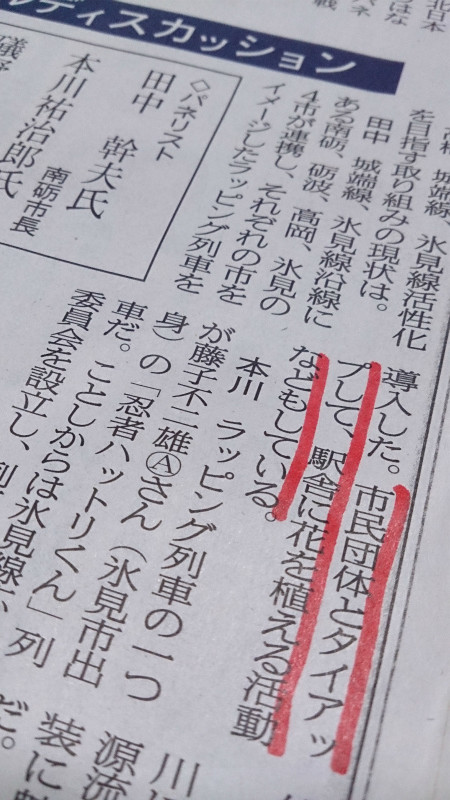 北日本
はな
ルディスカッション
城端線、氷見線活性化
を目指す取り組みの現状は。
田中 城端線、氷見線沿線に
ある南砺、砺波、高岡、氷見の
4市が連携し、それぞれの市を
イメージしたラッピング列車を
◇パネリスト
田中 幹夫氏
南砺市長
本川祐治郎氏
導入した。市民団体とタイアッ
プして、駅舎に花を植える活動
などもしている。
本川 ラッピング列車の一つ
が藤子不二雄Ⓐさん(氷見市出
身)の「忍者ハットリくん」列
車だ。ことしからは氷見線に、
委員会を設立し、
川
源流
装に
だ。